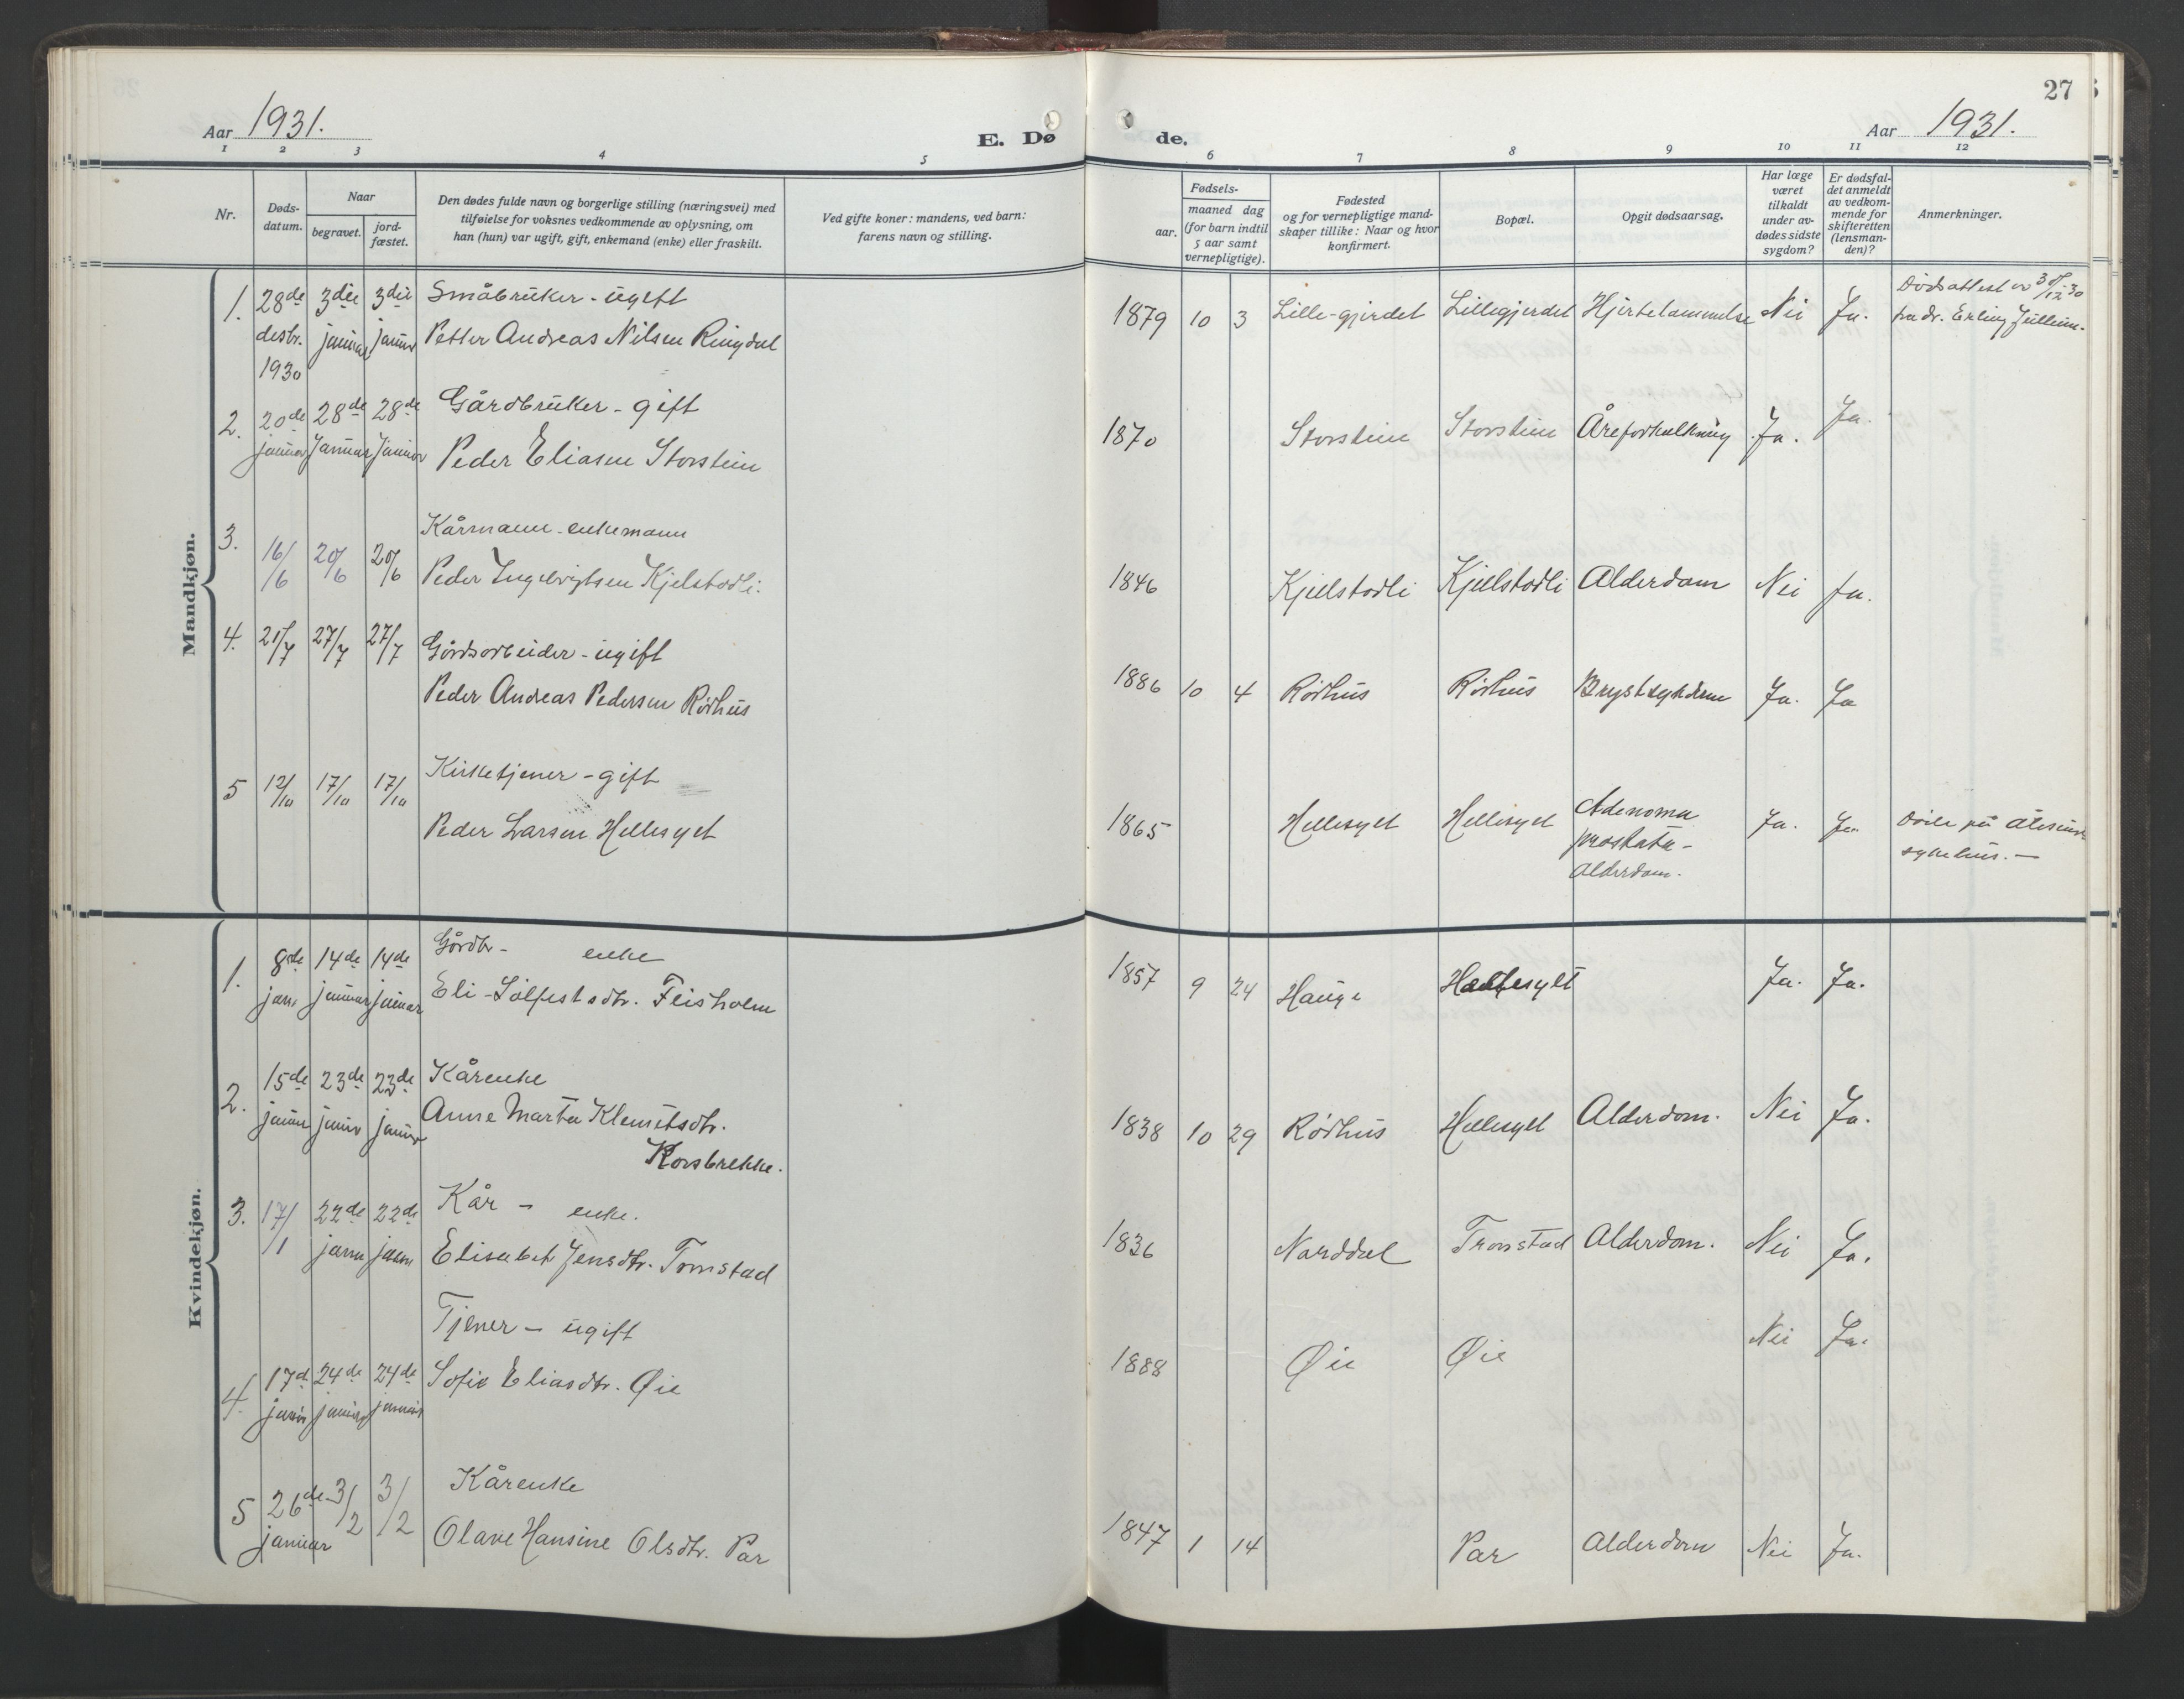 27
Aar 1931.
E. Døde.
Aar 1931.
1 2 3 4 5 6 7 8 9 10 11 12
Nr.
Døds-
datum.
Naar
begravet.
jord-
fæstet.
Den dødes fulde navn og borgerlige stilling (næringsvei) med
tilføielse for voksnes vedkommende av oplysning, om
han (hun) var ugift, gift, enkemand (enke) eller fraskilt.
Ved gifte koner: mandens, ved barn:
farens navn og stilling.
Fødsels-
aar.
maaned dag
(for barn indtil
5 aar samt
vernepligtige).
Fødested
og for vernepligtige mand-
skaper tillike: Naar og hvor
konfirmert.
Bopæl.
Opgit dødsaarsag.
Har læge
været
tilkaldt
under av-
dødes sidste
sygdom?
Er dødsfal-
det anmeldt
av vedkom-
mende for
skifteretten
(lensman-
den)?
Anmerkninger.
Mandkjøn.
1. 28de desbr. 1930 3die januar 3die januar
Småbruker - ugift
Petter Andreas Nilsen Ringdal
1879 10 3 Lille-gjerdet Lillegjerdet Hjertelammelse Nei Ja.
Dødsattest av 30/12 30
fra dr. Erling
2. 20de januar 28de Januar 28de Januar
Gårdbruker - gift
Peder Eliasen Storstein
1870 Storstein Storstein Åreforkalkning Ja. Ja.
3. 16/6 20/6 20/6
Kårmann - enkemann
Peder Ingebrigtsen Kjelstadli.
1846 Kjellstadli Kjellstadli Alderdom Nei Ja.
4. 21/7 27/7 27/7
Gårdsarbeider - ugift
Peder Andreas Pedersen Rødhus
1886 10 4 Rødhus Rødhus Brystsykdom Ja. Ja
5 12/10 17/10 17/10
Kirketjener - gift
Peder Larsen Hellesylt
1865 Hellesylt Hellesylt Adenoma
prostata -
Alderdom.
Ja. Ja.
Døde på Ålesunds
sykehus. -
Kvindekjøn.
1. 8de jan. 14de januar 14de januar
Gårdbr - enke
Eli Sølfestsdtr. Fleisholm
1857 9 24 Hauge Hellesylt Ja. Ja.
2. 15de januar 23de januar 23de januar
Kårenke
Anne Marta Klemetsdtr.
Korsbrekke.
1838 10 29 Rødhus Hellesylt Alderdom. Nei Ja.
3. 17/1 22de januar 22de januar
Kår - enke.
Elisabet Jensdtr. Tronstad
1836 Norddal Tronstad Alderdom. Nei Ja.
4. 17de januar 24de januar 24de januar
Tjener - ugift
Sofie Eliasdtr. Øie
1888 Øie Øie Nei Ja.
5 26de januar 3/2 3/2
Kårenke
Olave Hansine Olsdtr. Par
1847 1 14 Par Alderdom Nei Ja.